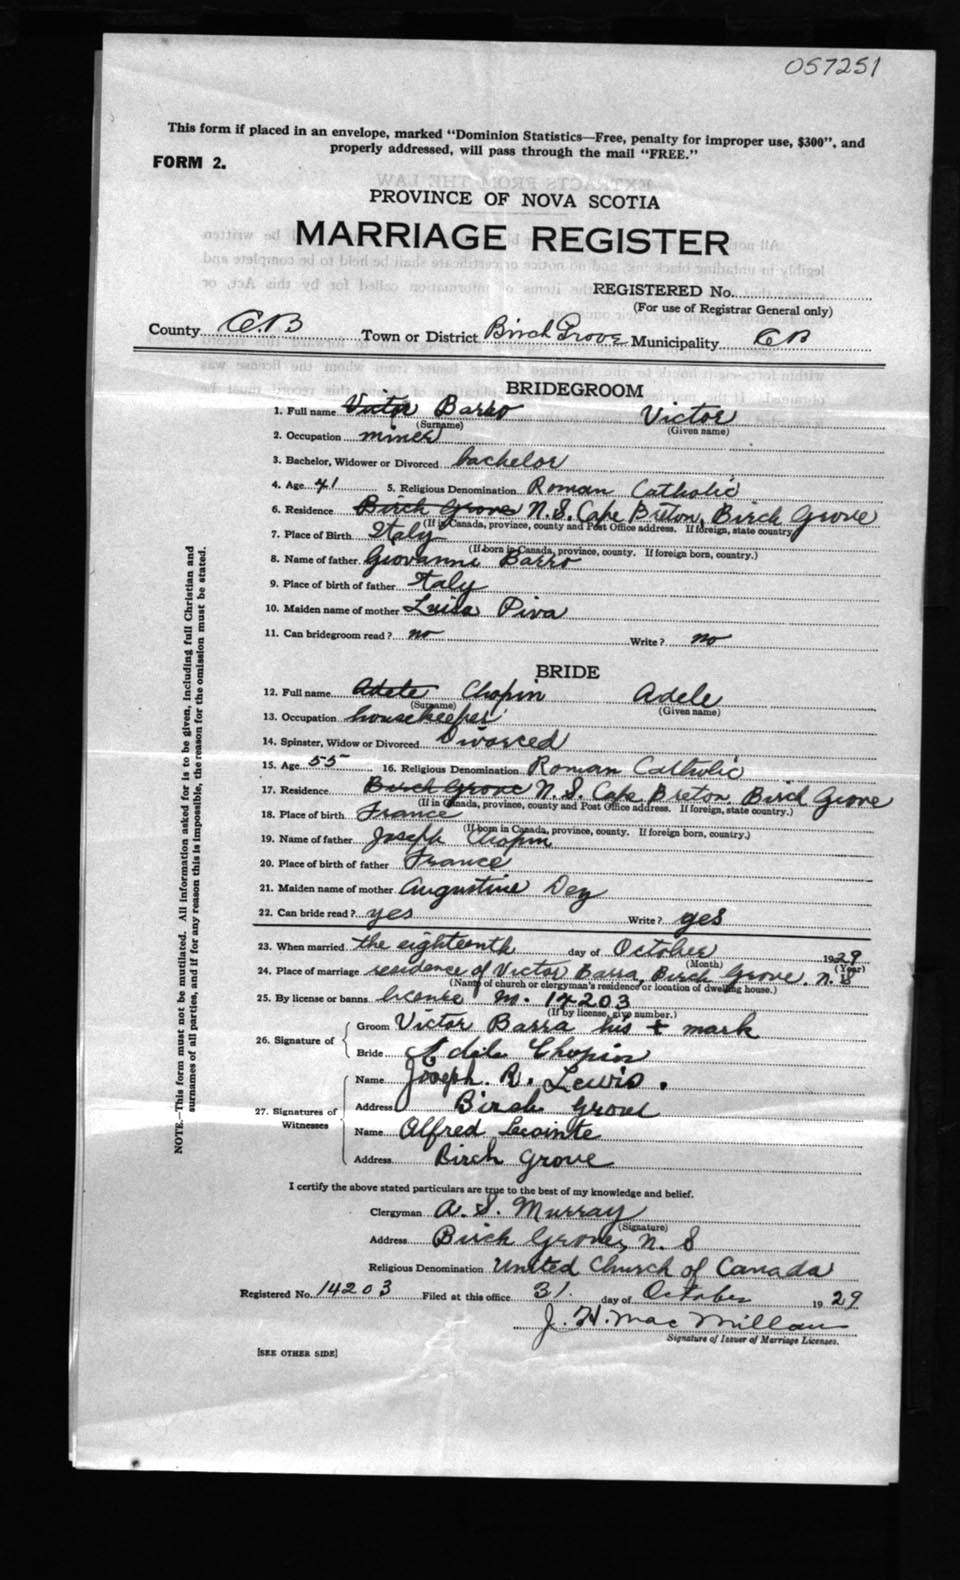 057251
This form if placed in an envelope, marked "Dominion Statistics—Free, penalty for improper use, $300", and
properly addressed, will pass through the mail "FREE."
FORM 2.
PROVINCE OF NOVA SCOTIA
MARRIAGE REGISTER
REGISTERED No.
(For use of Registrar General only)
County C.B Town or District Birch Grove Municipality C B
BRIDEGROOM
1. Full name Victor Barro Victor
(Surname) (Given name)
2. Occupation miner
3. Bachelor, Widower or Divorced bachelor
4. Age 41 5. Religious Denomination Roman Catholic
6. Residence Birch Grove N.S. Cape Breton, Birch Grove
(If in Canada, province, county and Post Office address. If foreign, state country)
7. Place of Birth Italy
(If born in Canada, province, county. If foreign born, country.)
8. Name of father Giovanni Barro
9. Place of birth of father Italy
10. Maiden name of mother Luisa Piva
11. Can bridegroom read? no Write? no
BRIDE
12. Full name Adele Chopin Adele
(Surname) (Given name)
13. Occupation housekeeper
14. Spinster, Widow or Divorced Divorced
15. Age 55 16. Religious Denomination Roman Catholic
17. Residence Birch Grove N.S. Cape Breton Birch Grove
(If in Canada, province, county and Post Office address. If foreign, state country.)
18. Place of birth France
(If born in Canada, province, county. If foreign born, country.)
19. Name of father Joseph Chopin
20. Place of birth of father France
21. Maiden name of mother Augustine Dey
22. Can bride read? yes Write? yes
23. When married the eighteenth day of October 1929
(Month) (Year)
24. Place of marriage residence of Victor Barra, Birch Grove. N.S
(Name of church or clergyman's residence or location of dwelling house.)
25. By license or banns license M. 14203
(If by license, give number.)
26. Signature of Groom Victor Barra his + mark
Bride Adele Chopin
27. Signatures of Witnesses
Name Joseph. R. Lewis.
Address Birch Grove
Name Alfred Lecointe
Address Birch Grove
I certify the above stated particulars are true to the best of my knowledge and belief.
Clergyman A. S. Murray
(Signature)
Address Birch Grove, N. S
Religious Denomination United Church of Canada
Registered No. 14203 Filed at this office 31. day of October 1929
J. H. MacMillan
Signature of Issuer of Marriage Licenses.
[SEE OTHER SIDE]
NOTE.—This form must not be mutilated. All information asked for is to be given, including full Christian and
surnames of all parties, and if for any reason this is impossible, the reason for the omission must be stated.